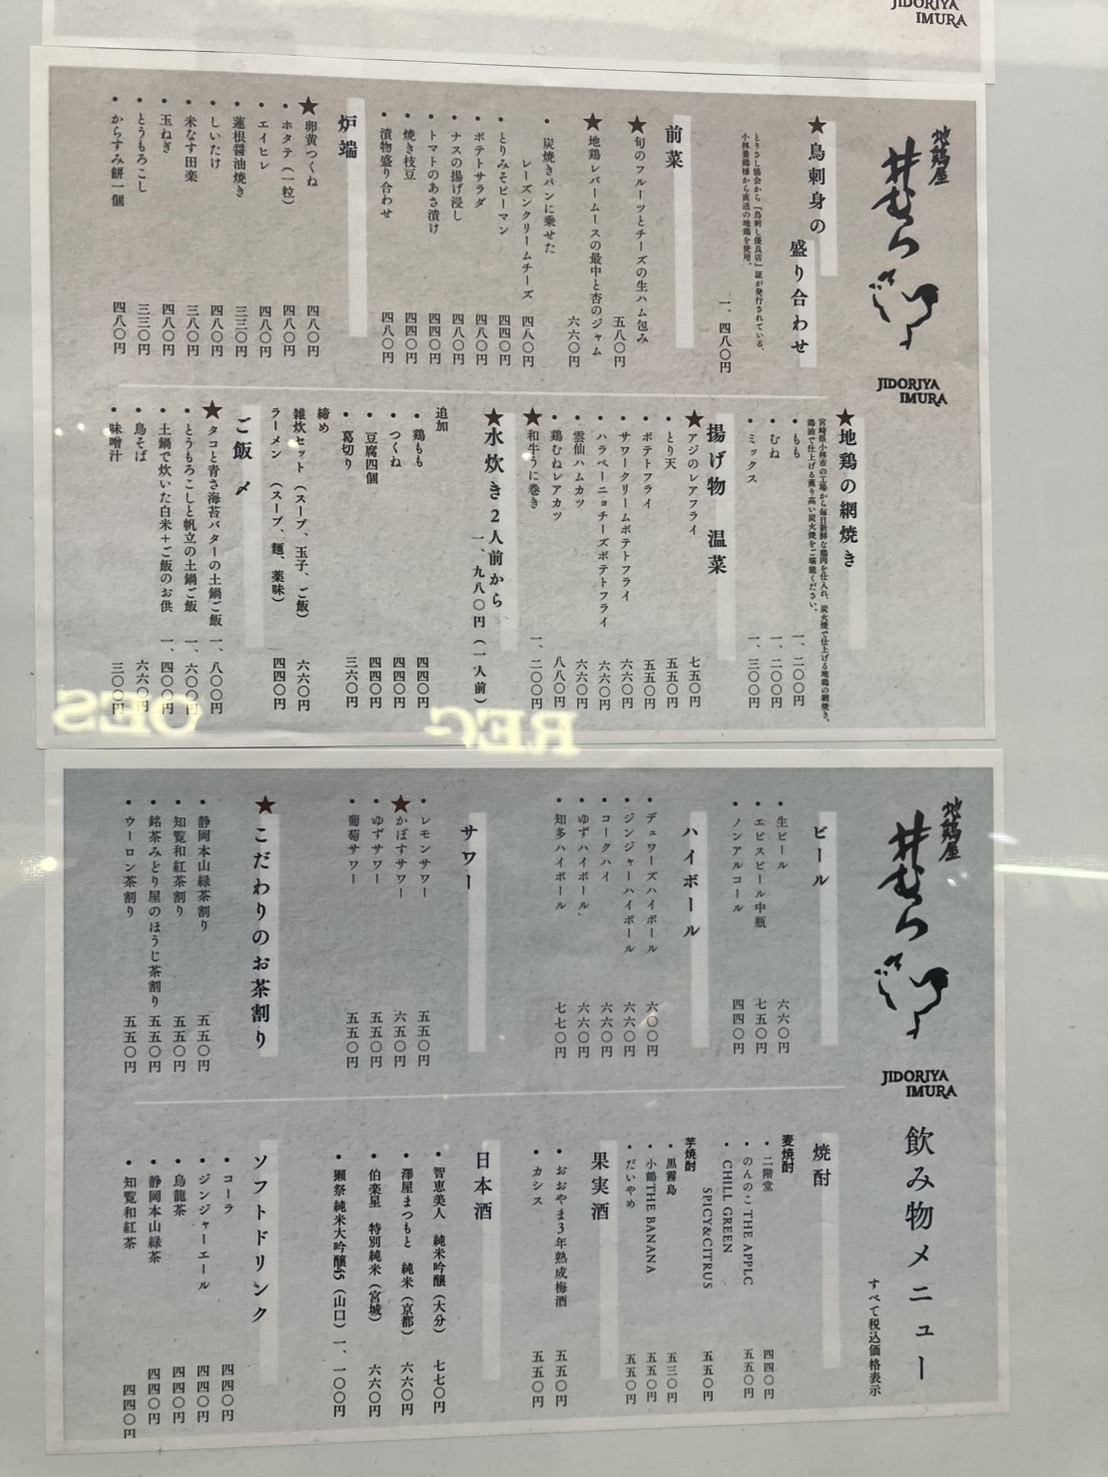 JIDORIYA
IMURA
地鶏屋
井むら
JIDORIYA
IMURA
★鳥刺身の
盛り合わせ
とりさし協会から「鳥刺し優良店」証が発行されている、
小林養鶏様から直送の地鶏を使用。
一、四八〇円
前菜
★旬のフルーツとチーズの生ハム包み 五八〇円
★地鶏レバームースの最中と杏のジャム 六六〇円
・炭焼きパンに乗せた
レーズンクリームチーズ 四八〇円
・とりみそピーマン 四四〇円
・ポテトサラダ 四八〇円
・ナスの揚げ浸し 四八〇円
・トマトのあさ漬け 四四〇円
・焼き枝豆 四四〇円
・漬物盛り合わせ 四八〇円
炉端
★卵黄つくね 四八〇円
・ホタテ（一粒） 四八〇円
・エイヒレ 四八〇円
・蓮根醤油焼き 三三〇円
・しいたけ 四八〇円
・米なす田楽 三八〇円
・玉ねぎ 四八〇円
・とうもろこし 三三〇円
・からすみ餅一個 四八〇円
★地鶏の網焼き
宮崎県小林市の工場から毎日新鮮な鶏肉を仕入れ、炭火焼で仕上げる地鶏の網焼き。
鶏油で仕上げる薫り高い炭火焼をご堪能ください。
・もも 一、二〇〇円
・むね 一、二〇〇円
・ミックス 一、三〇〇円
揚げ物 温菜
★アジのレアフライ 七五〇円
・とり天 五五〇円
・ポテトフライ 五五〇円
・サワークリームポテトフライ 六六〇円
・ハラペーニョチーズポテトフライ 六六〇円
・雲仙ハムカツ 六六〇円
・鶏むねレアカツ 八八〇円
★和牛うに巻き 一、二〇〇円
★水炊き２人前から
一、九八〇円（一人前）
追加
・鶏もも 四四〇円
・つくね 四四〇円
・豆腐四個 四四〇円
・葛切り 三六〇円
締め
雑炊セット（スープ、玉子、ご飯） 六六〇円
ラーメン（スープ、麺、薬味） 四四〇円
ご飯〆
★タコと青さ海苔バターの土鍋ご飯 一、八〇〇円
・とうもろこしと帆立の土鍋ご飯 一、六〇〇円
・土鍋で炊いた白米＋ご飯のお供 一、四〇〇円
・鳥そば 六六〇円
・味噌汁 三〇〇円
地鶏屋
井むら
JIDORIYA
IMURA
飲み物メニュー
すべて税込価格表示
ビール
・生ビール 六六〇円
・エビスビール中瓶 七五〇円
・ノンアルコール 四四〇円
ハイボール
・デュワーズハイボール 六〇〇円
・ジンジャーハイボール 六六〇円
・コークハイ 六六〇円
・ゆずハイボール 六六〇円
・知多ハイボール 七七〇円
サワー
・レモンサワー 五五〇円
★かぼすサワー 六五〇円
・ゆずサワー 五五〇円
・葡萄サワー 五五〇円
★こだわりのお茶割り
・静岡本山緑茶割り 五五〇円
・知覧和紅茶割り 五五〇円
・銘茶みどり屋のほうじ茶割り 五五〇円
・ウーロン茶割り 五五〇円
焼酎
麦焼酎
・二階堂 四四〇円
・のんのこTHE APPLC 五五〇円
・CHILL GREEN
SPICY&CITRUS 五五〇円
芋焼酎
・黒霧島 五三〇円
・小鶴THE BANANA 五五〇円
・だいやめ 五五〇円
果実酒
・おおやま３年熟成梅酒 五五〇円
・カシス 五五〇円
日本酒
・智恵美人 純米吟醸（大分） 七七〇円
・澤屋まつもと 純米（京都） 六六〇円
・伯楽星 特別純米（宮城） 六六〇円
・獺祭 純米大吟醸45（山口） 一、一〇〇円
ソフトドリンク
・コーラ 四四〇円
・ジンジャーエール 四四〇円
・烏龍茶 四四〇円
・静岡本山緑茶 四四〇円
・知覧和紅茶 四四〇円